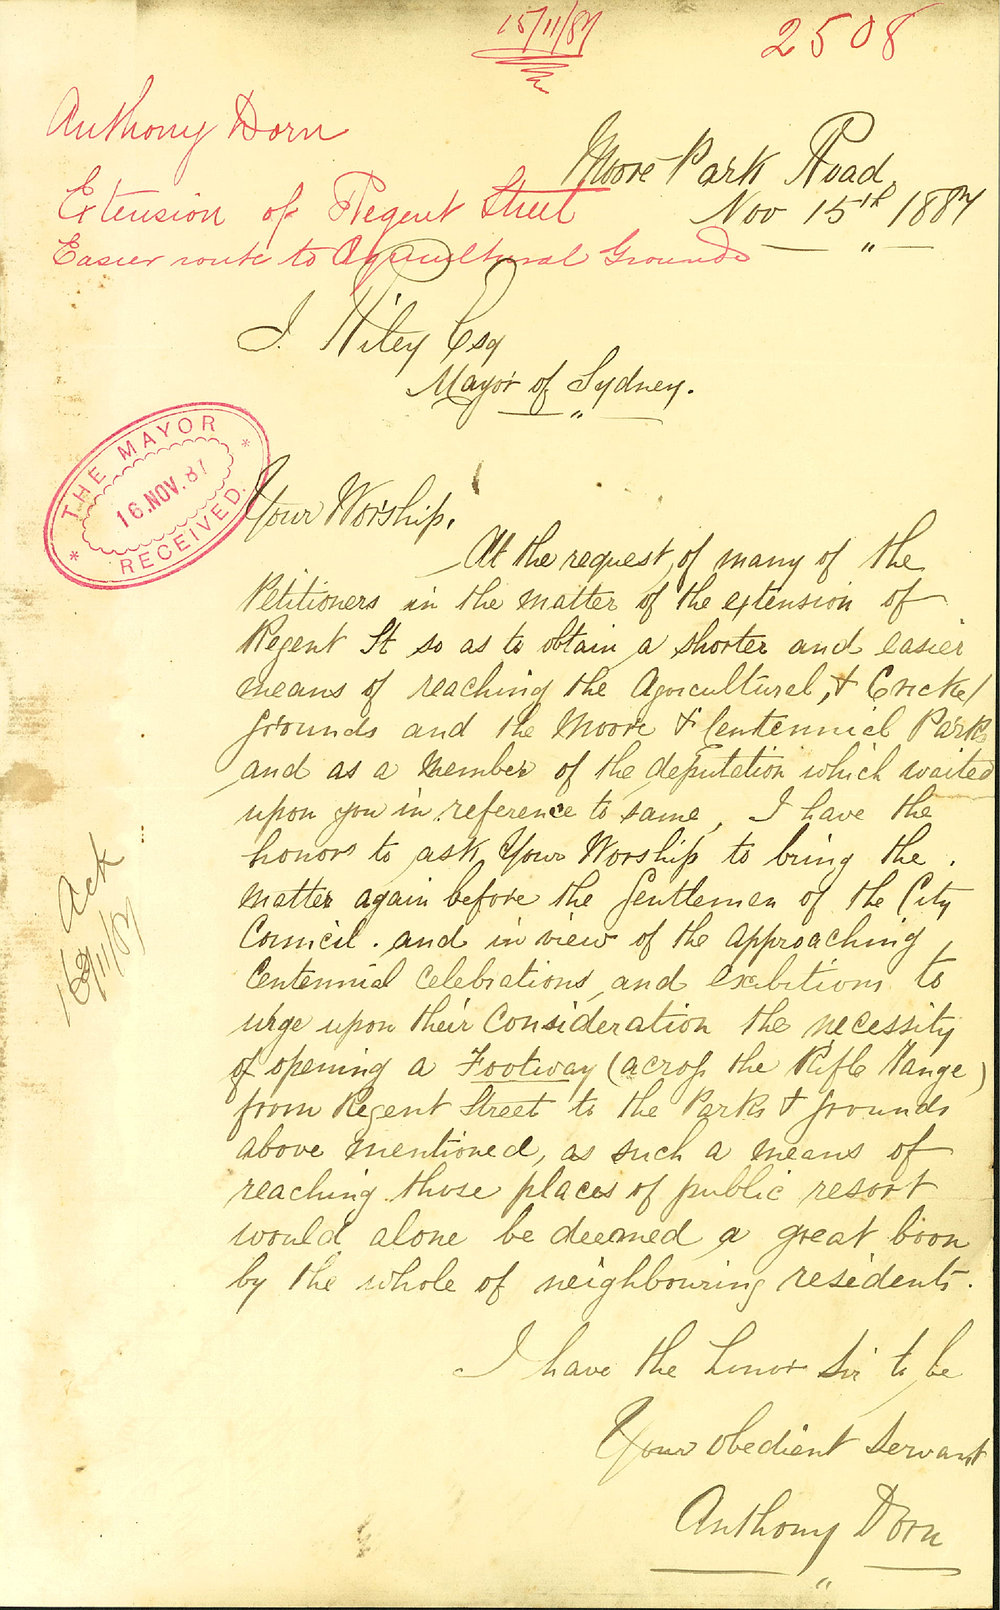 15/11/87
2508
Anthony Dorn
Extension of Regent Street
Easier route to Agricultural Grounds
Moore Park Road
Nov 15th 1887
J. Riley Esq
Mayor of Sydney.
THE MAYOR
16.NOV.87
RECEIVED.
Your Worship,
At the request, of many of the
Petitioners in the matter of the extension of
Regent St so as to obtain a shorter and easier
means of reaching the Agricultural, & Cricket
Grounds and the Moore & Centennial Parks
and as a member of the deputation which waited
upon you in reference to same, I have the
honor to ask Your Worship to bring the
matter again before the Gentlemen of the City
Council. and in view of the approaching
Centennial Celebrations, and exibitions to
urge upon their Consideration the necessity
of opening a Footway (across the Rifle Range)
from Regent Street to the Parks & Grounds
above mentioned, as such a means of
reaching those places of public resort
would alone be deemed a great boon
by the whole of neighbouring residents.
I have the honor Sir to be
Your obedient Servant
Anthony Dorn
Ack
16/11/87